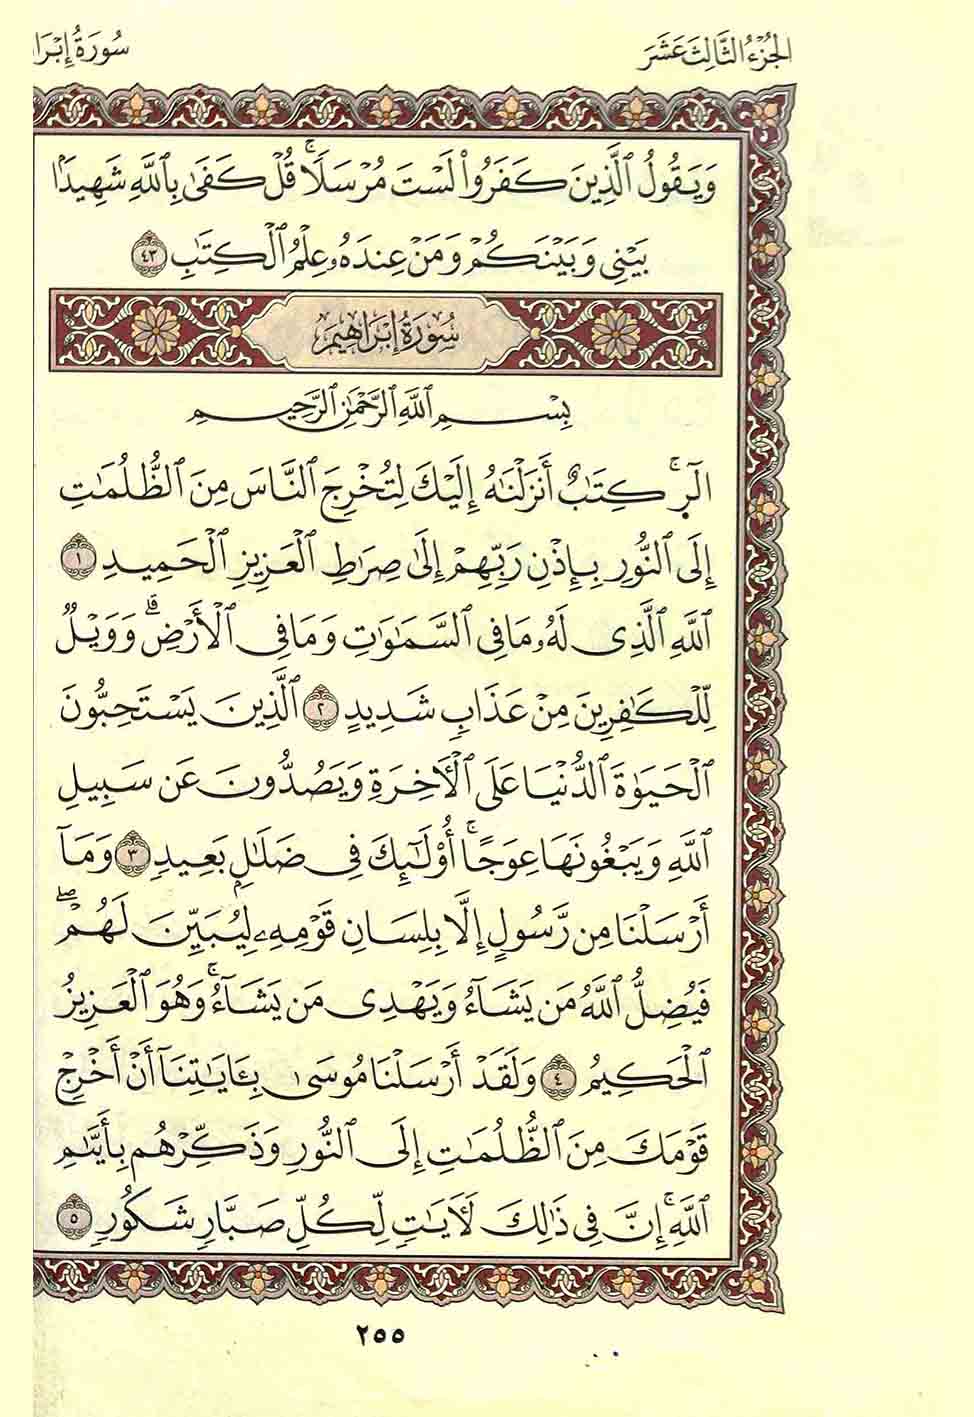 الجزء الثالث عشر
سورة إبرا
وَيَقُولُ ٱلَّذِينَ كَفَرُواْ لَسْتَ مُرْسَلًاۚ قُلْ كَفَىٰ بِٱللَّهِ شَهِيدًۢا
بَيْنِي وَبَيْنَكُمْ وَمَنْ عِندَهُۥ عِلْمُ ٱلْكِتَٰبِ ٤٣
سُورَةُ إِبْرَاهِيمَ
بِسْمِ ٱللَّهِ ٱلرَّحْمَٰنِ ٱلرَّحِيمِ
الٓرۚ كِتَٰبٌ أَنزَلْنَٰهُ إِلَيْكَ لِتُخْرِجَ ٱلنَّاسَ مِنَ ٱلظُّلُمَٰتِ
إِلَى ٱلنُّورِ بِإِذْنِ رَبِّهِمْ إِلَىٰ صِرَٰطِ ٱلْعَزِيزِ ٱلْحَمِيدِ ١
ٱللَّهِ ٱلَّذِى لَهُۥ مَا فِى ٱلسَّمَٰوَٰتِ وَمَا فِى ٱلْأَرْضِۗ وَوَيْلٌ
لِّلْكَٰفِرِينَ مِنْ عَذَابٍ شَدِيدٍ ٢ ٱلَّذِينَ يَسْتَحِبُّونَ
ٱلْحَيَوٰةَ ٱلدُّنْيَا عَلَى ٱلْأَخِرَةِ وَيَصُدُّونَ عَن سَبِيلِ
ٱللَّهِ وَيَبْغُونَهَا عِوَجًاۚ أُوْلَٰٓئِكَ فِى ضَلَٰلٍۭ بَعِيدٍ ٣ وَمَآ
أَرْسَلْنَا مِن رَّسُولٍ إِلَّا بِلِسَانِ قَوْمِهِۦ لِيُبَيِّنَ لَهُمْۖ
فَيُضِلُّ ٱللَّهُ مَن يَشَآءُ وَيَهْدِى مَن يَشَآءُۚ وَهُوَ ٱلْعَزِيزُ
ٱلْحَكِيمُ ٤ وَلَقَدْ أَرْسَلْنَا مُوسَىٰ بِـَٔايَٰتِنَآ أَنْ أَخْرِجْ
قَوْمَكَ مِنَ ٱلظُّلُمَٰتِ إِلَى ٱلنُّورِ وَذَكِّرْهُم بِأَيَّىٰمِ
ٱللَّهِۚ إِنَّ فِى ذَٰلِكَ لَأَيَٰتٍ لِّكُلِّ صَبَّارٍ شَكُورٍ ٥
٢٥٥